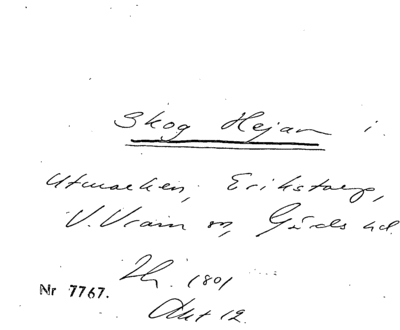 Skog Hejan i
Utmarken, Erikstorp,
V. Vram sn, Gärds hd.
Lh. 1801
Nr 7767.
Akt 12